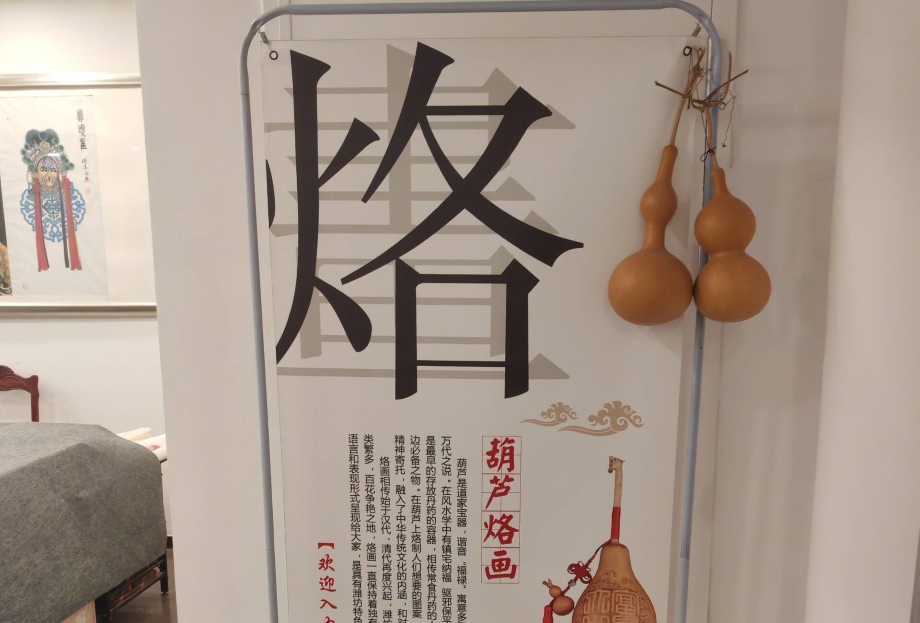 烙
畫
葫芦烙画
葫芦是道家宝器，谐音“福禄”寓意多
万代之说。在风水学中有镇宅纳福 驱邪保平
是最早的存放丹药的容器，相传常食丹药的
边必备之物。在葫芦上烙制人们想要的图案
精神寄托，融入了中华传统文化的内涵，和对
烙画相传始于汉代、清代再度兴起，潍坊
类繁多，百花争艳之地，烙画一直保持着独有
语言和表现形式呈现给大家，是具有潍坊特色
【欢迎入